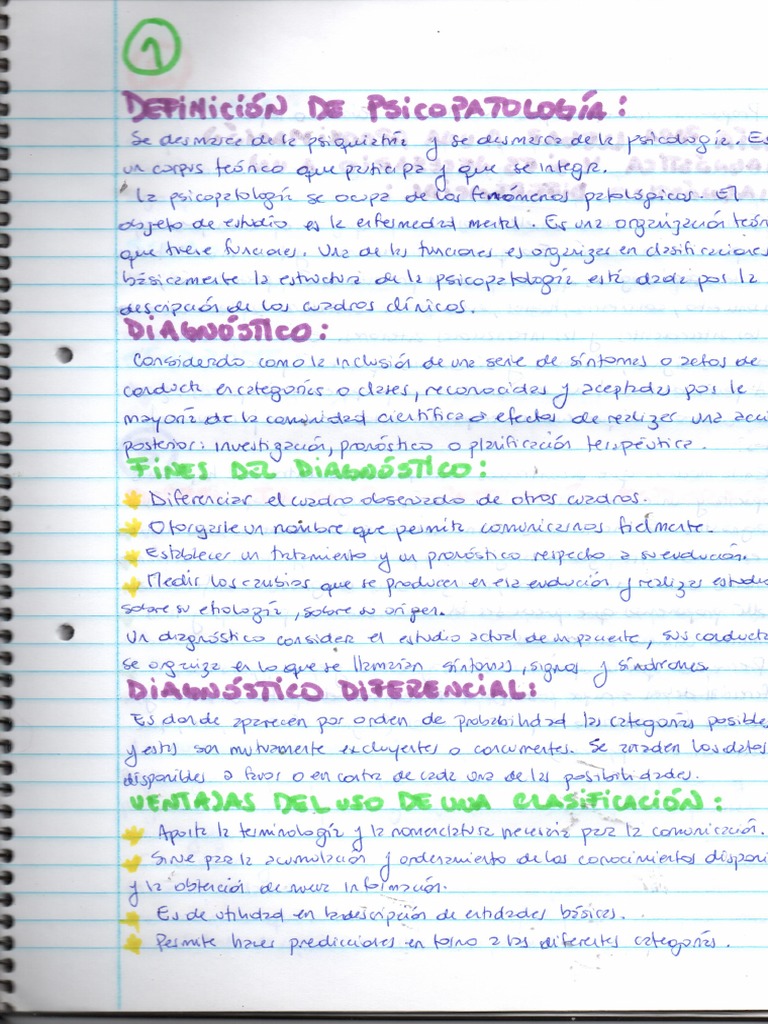 1
DEFINICIÓN DE PSICOPATOLOGÍA:
Se desmarca de la psiquiatría y se desmarca de la psicología. Es
un corpus teórico que participa y que se integra.
La psicopatología se ocupa de los fenómenos patológicos. El
objeto de estudio es la enfermedad mental. Es una organización teór
que tiene funciones. Una de las funciones es organizar en clasificaciones
básicamente la estructura de la psicopatología está dada por la
descripción de los cuadros clínicos.
DIAGNÓSTICO:
Considerado como la inclusión de una serie de síntomas o actos de
conducta en categorías o clases, reconocidas y aceptadas por la
mayoría de la comunidad científica a efectos de realizar una acci
posterior: investigación, pronóstico o planificación terapéutica.
FINES DEL DIAGNÓSTICO:
Diferenciar el cuadro observado de otros cuadros.
Otorgarle un nombre que permita comunicarnos fielmente.
Establecer un tratamiento y un pronóstico respecto a su evolución.
Medir los cambios que se producen en esa evolución y realizar estudio
sobre su etiología, sobre su origen.
Un diagnóstico considera el estudio actual de un paciente, sus conducta
se organiza en lo que se llamarían síntomas, signos y síndromes.
DIAGNÓSTICO DIFERENCIAL:
Es donde aparecen por orden de probabilidad las categorías posibles
y estas son mutuamente excluyentes o concurrentes. Se añaden los datos
disponibles a favor o en contra de cada una de las posibilidades.
VENTAJAS DEL USO DE UNA CLASIFICACIÓN:
Aporta la terminología y la nomenclatura necesaria para la comunicación.
Sirve para la acumulación y ordenamiento de los conocimientos disponi
y la obtención de nueva información.
Es de utilidad en la descripción de entidades básicas.
Permite hacer predicciones en torno a las diferentes categorías.